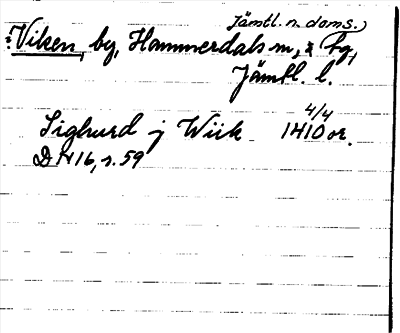 Jämtl. n. doms.)
:Viken, by, Hammerdals sn, & tg,
Jämtl. l.
4/4
Sighurd j Wiik 1410 or.
D N 16, s. 59